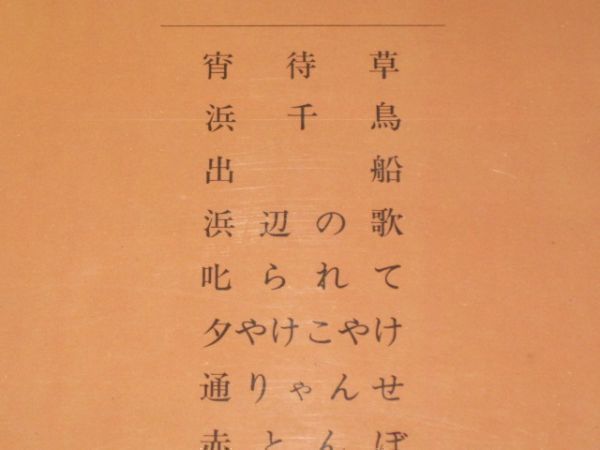 宵待草
浜千鳥
出船
浜辺の歌
叱られて
夕やけこやけ
通りゃんせ
赤とんぼ